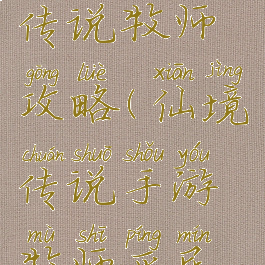 传说牧师
gōng lüè xiān jìng
攻略(仙境
chuán shuō shǒu yóu
传说手游
mù shī píng mín
牧师平民